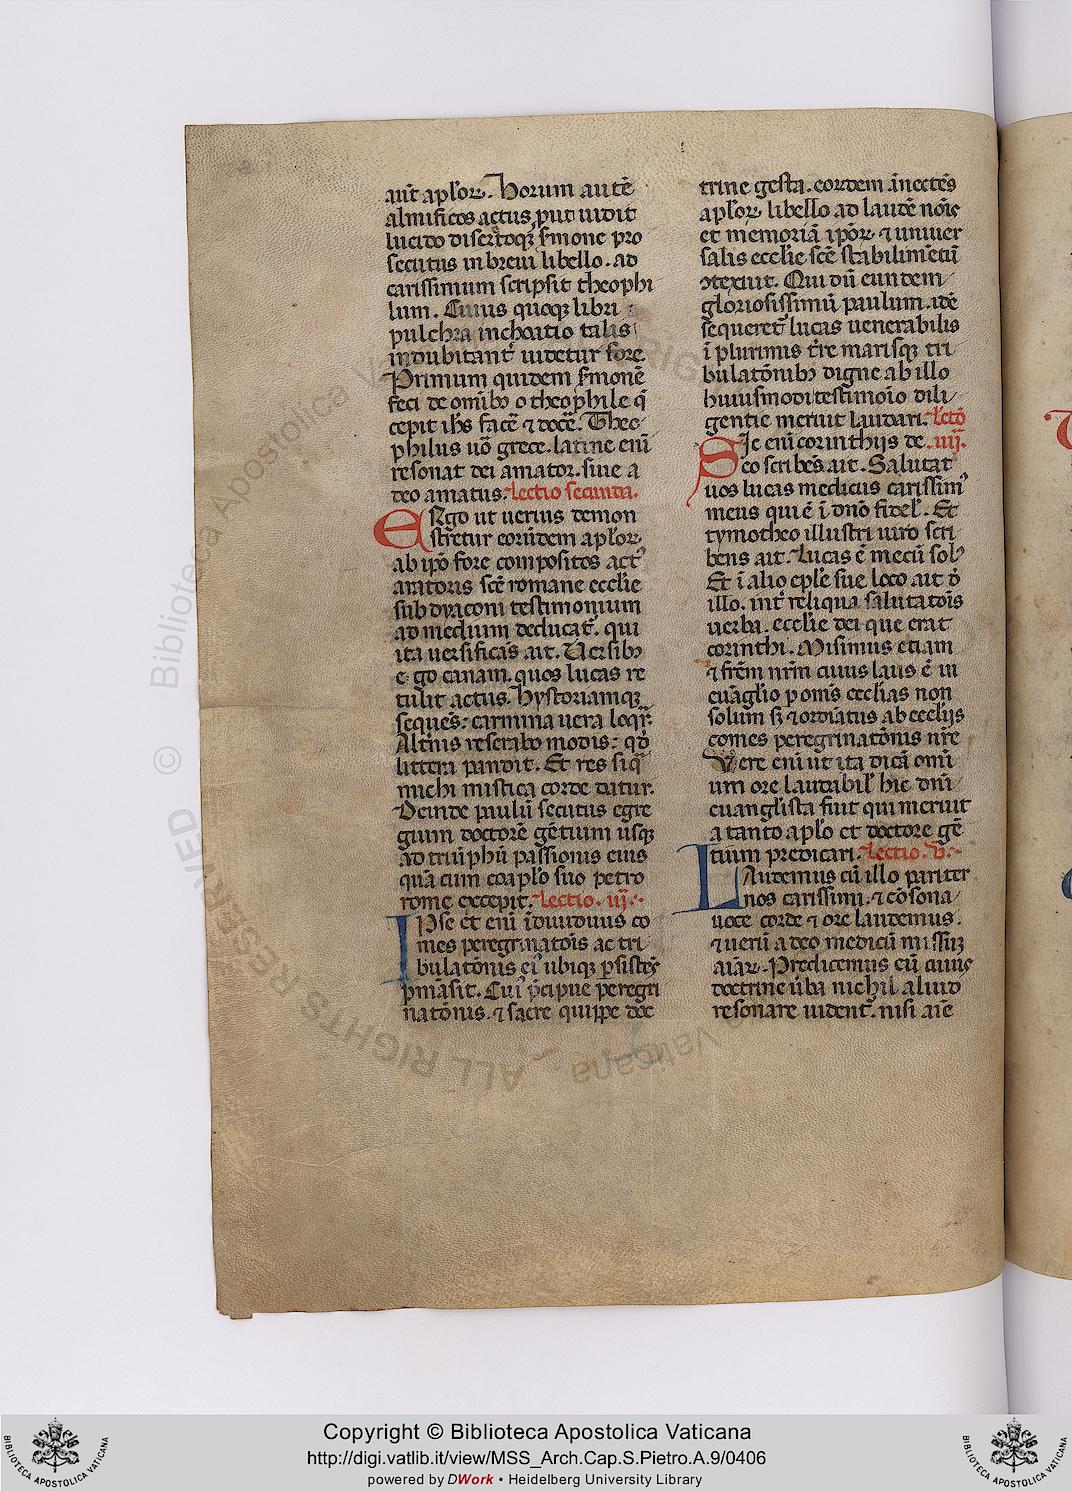 aut͂ apl'oꝝ. Horum aute͂
almificos actus put uidit
lucido disertoqꝫ s'mone pro
secutus in breui libello. ad
carissimum scripsit theophi
lum. Cuius quoqꝫ libri
pulchra inchoatio talis
indubitant' uidetur fore.
Primum quidem s'mone͂
feci de omibꝫ o theophile q̄
cepit ih̄s face͂ ⁊ doce͂. Theo
philus uō grece. latine eni͂
resonat dei amator. siue a
deo amatus. Lectio secunda.
ERgo ut uerius demon
stretur eorūdem apl'oꝝ
ab ip̄o fore compositos act'
aratoris sc̄e romane eccl'ie
subdyaconi testimonium
ad medium deducat'. qui
ita uersificas ait. Uersibꝫ
e go canam. quos lucas re
tulit actus. hystoriamqꝫ
seques̄. carmina uera loqr̄.
Alt'nis reserabo modis. qd̄
littera pandit. Et res siq̄
michi mistica corde datur.
Deinde paulu͂ secutus egre
gium doctore͂ ge͂tium usqꝫ
ad triu͂phu͂ passionis eius
qua͂ cum coapl'o suo petro
rome excepit. Lectio. iij.
IPse et eni͂ i͂diuiduus co
mes peregrinatōis ac tri
bulatōnis ei' ubiqꝫ p̱siste͂s
p̱ma͂sit. Cui' p̄cipue peregri
natōnis. ⁊ sacre quippe doc
trine gesta. eordem ānecte͂s
apl'oꝝ libello ad laude͂ nōis
et memoria͂ ip̄oꝝ ⁊ uniuer
salis eccl'ie sc̄e stabilime͂tu͂
ꝯtexuit. Qui du͂ eundem
gloriosissimu͂ paulum. ide͂
sequeret' lucas uenerabilis
i͂ plurimis t're marisqꝫ tri
bulatōnibꝫ digne ab illo
huiusmodi testimoīo dili
gentie meruit laudari. Lctō
SIc eni͂ corinthijs de iiij.
eo scribe͂s ait. Salutat
uos lucas medicus carissim'
meus qui e͂ i͂ dn̄o fidel'. Et
tymotheo illustri uiro scri
bens ait. Lucas e͂ mecu͂ sol'
Et i͂ alio epl'e sue loco ait d̄
illo. int' reliqua salutatōis
uerba. eccl'ie dei que erat
corinthi. Misimus etiam
⁊ fr̄em nr̄m cuius laus e͂ i͂
eua͂glio p omīs eccl'ias non
solum sꝫ ⁊ ordīatus ab eccl'ijs
comes peregrinatōnis nr̄e
Vere eni͂ ut ita dica͂ omi͂
um ore laudabil' hic dn̄i
euangl'ista fuit qui meruit
a tanto apl'o et doctore ge͂
tium predicari. Lectio. v.
LAudemus cu͂ illo pariter
nos carissimi. ⁊ cōsona
uoce corde ⁊ ore laudemus.
⁊ ueru͂ a deo medicu͂ missuꝫ
aīaꝝ. Predicemus eu͂ cuius
doctrine ūba nichil aliud
resonare uident'. nisi aīe
Copyright © Biblioteca Apostolica Vaticana
http://digi.vatlib.it/view/MSS_Arch.Cap.S.Pietro.A.9/0406
powered by DWork • Heidelberg University Library
BIBLIOTECA APOSTOLICA VATICANA
BIBLIOTECA APOSTOLICA VATICANA
© Biblioteca Apostolica Vaticana ALL RIGHTS RESERVED